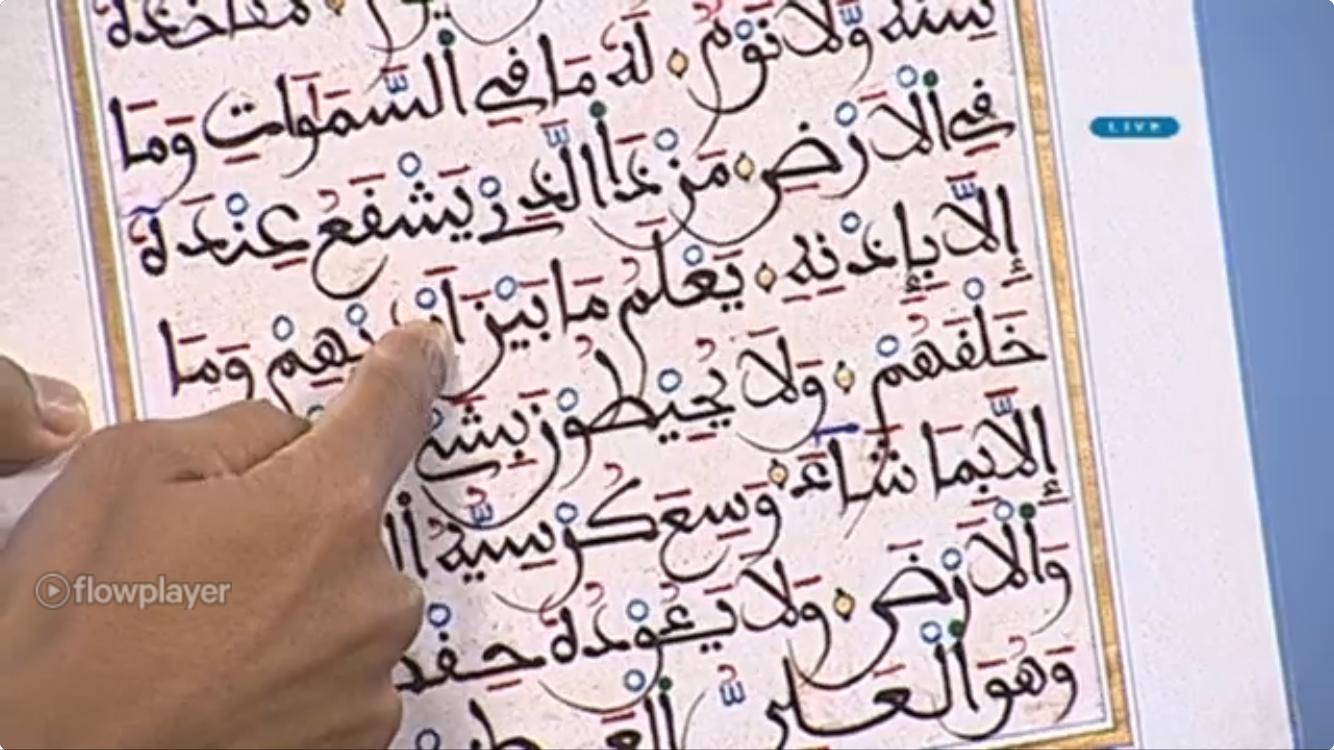 تَاخُذُهُۥ
سِنَةٌ وَلَا نَوْمٌ لَهُۥ مَا فِي اِ۬لسَّمَٰوَاتِ وَمَا
فِي اِ۬لْأَرْضِ مَن ذَا اَ۬لَّذِي يَشْفَعُ عِندَهُۥ
إِلَّا بِإِذْنِهِۦ يَعْلَمُ مَا بَيْنَ أَيْدِيهِمْ وَمَا
خَلْفَهُمْ وَلَا يُحِيطُونَ بِشَيْ
إِلَّا بِمَا شَآءَ وَسِعَ كُرْسِيُّهُ ال
وَالْأَرْضَ وَلَا يَـُٔودُهُۥ حِفْظ
وَهُوَ اَ۬لْعَلِيُّ اُ۬لْعَظِي
LIVE
flowplayer